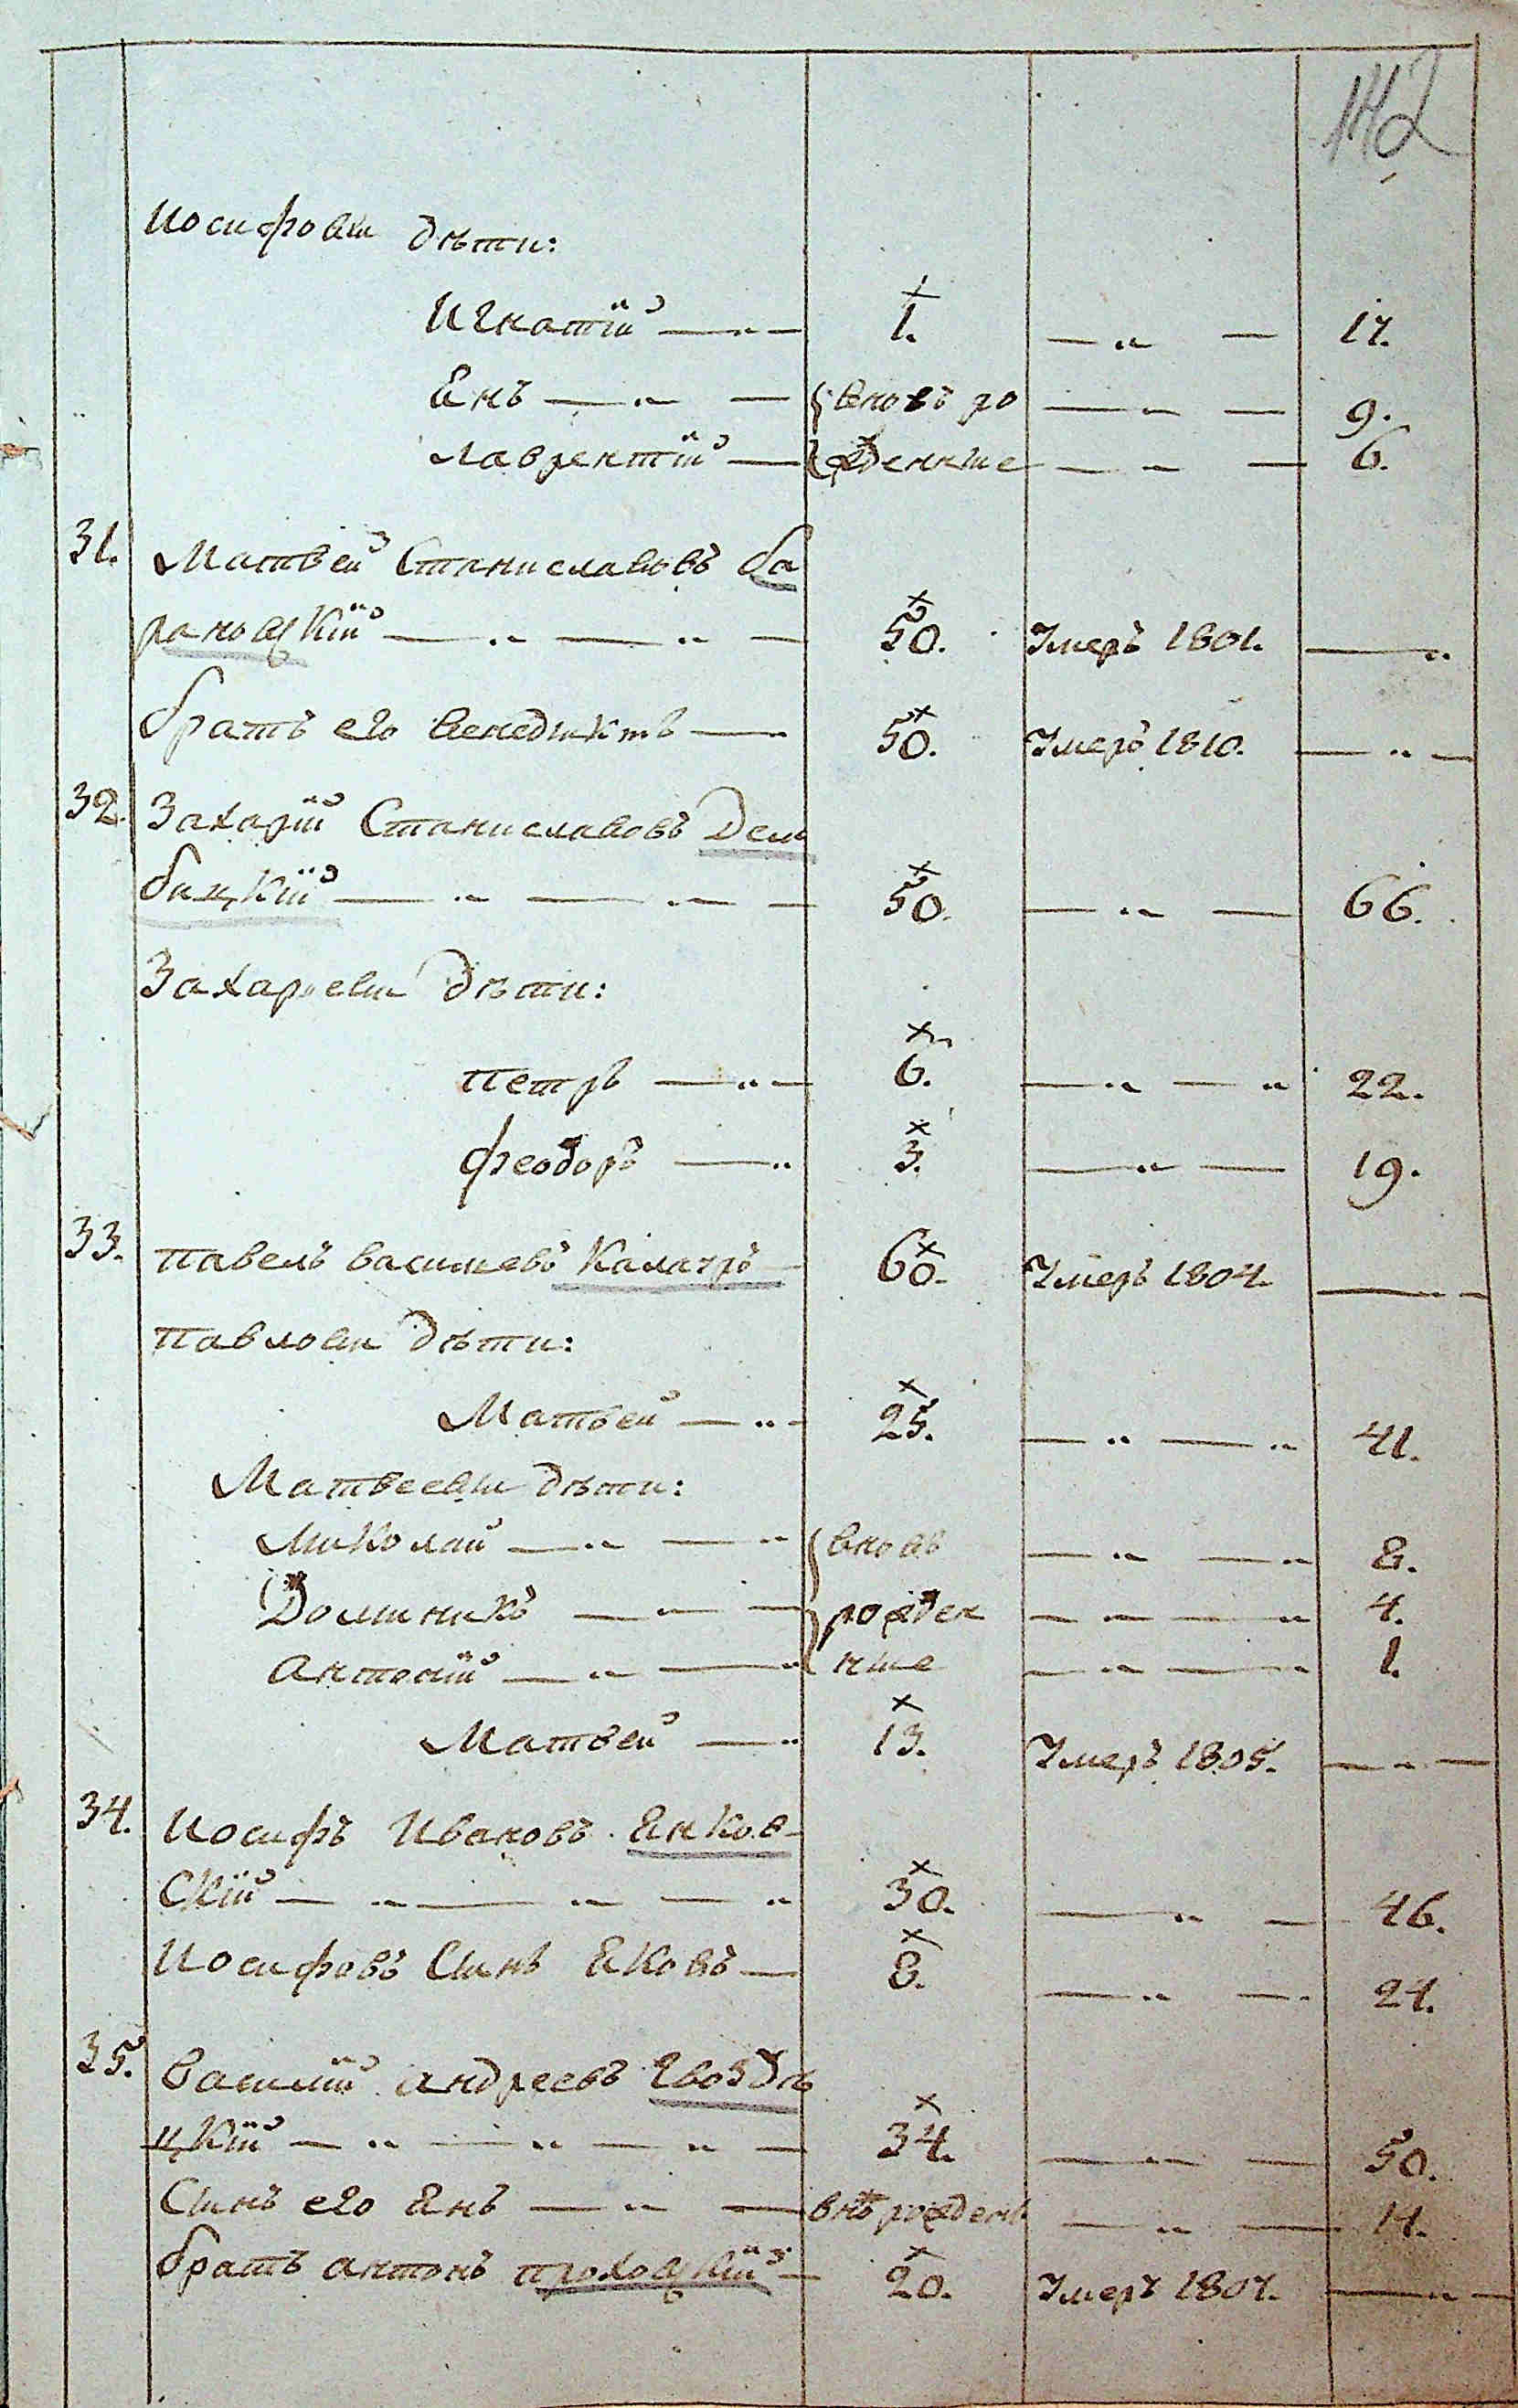 142
Иосифовы дѣти:
Игнатій — „ — 1. — „ — 17.
Янъ — „ — вновь ро — „ — 9.
Лаврентій — жденные — „ — 6.
31. Матвей Станиславовъ Ба
рановскій — „ — „ — 50. Умеръ 1801. — „
братъ его Венедиктъ — 50. Умеръ 1810. — „ —
32. Захарій Станиславовъ Дем
бицкій — „ — „ — 50. — „ — 66.
Захаревы дѣти:
Петръ — „ — 6. — „ — „ 22.
Феодоръ — „ 3. — „ — 19.
33. Павелъ Васильевъ 60. Умеръ 1804. — „ —
Павловы дѣти:
Матвей — „ — 25. — „ — „ 41.
Матвеевы дѣти:
Миколай — „ — „ вновь — „ — „ 8.
Доминикъ — „ — рожден — „ — „ 4.
Антоній — „ — „ ные — „ — „ 1.
Матвей — „ 13. Умеръ 1805. — „ —
34. Иосифъ Ивановъ Янков-
скій — „ — „ — „ 30. — „ — 46.
Иосифовъ Сынъ Яковъ — 8. — „ — 24.
35. Василій Андреевъ Гвоздѣ
цкій — „ — „ — „ — 34. — „ — 50.
Сынъ его Янъ — „ — внѣ рожденъ — „ — 14.
братъ Антонъ — 20. Умеръ 1807. — „ —